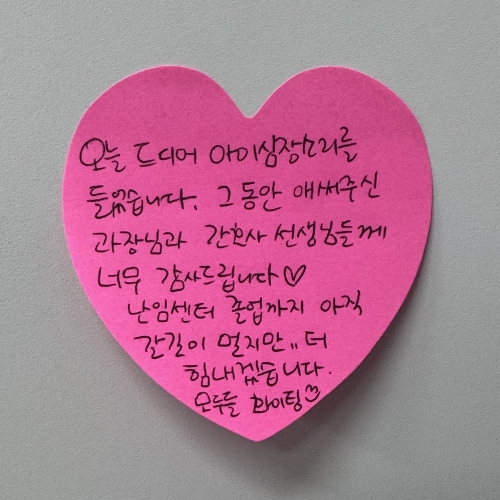 오늘 드디어 아이심장소리를
들었습니다. 그동안 애써주신
과장님과 간호사 선생님들께
너무 감사드립니다♡
난임센터 졸업까지 아직
갈길이 멀지만.. 더
힘내겠습니다.
모두들 화이팅♡